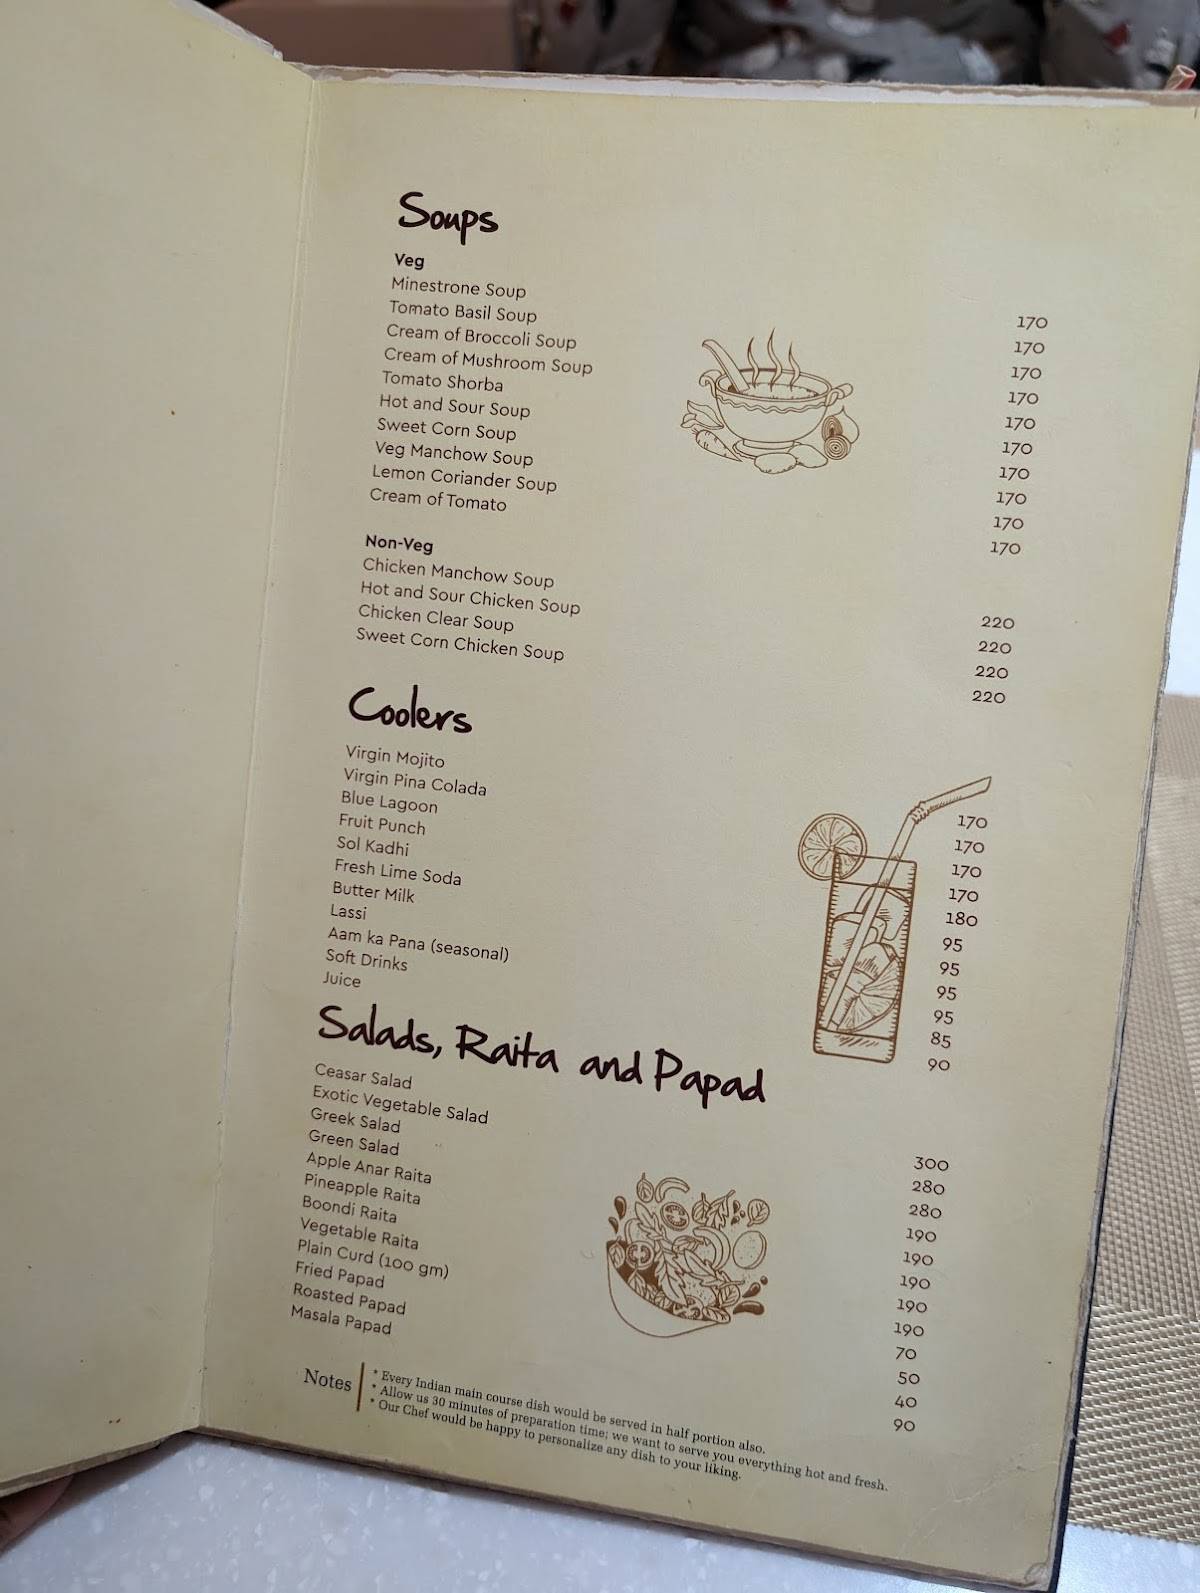 Soups
Veg
Minestrone Soup 170
Tomato Basil Soup 170
Cream of Broccoli Soup 170
Cream of Mushroom Soup 170
Tomato Shorba 170
Hot and Sour Soup 170
Sweet Corn Soup 170
Veg Manchow Soup 170
Lemon Coriander Soup 170
Cream of Tomato 170
Non-Veg
Chicken Manchow Soup 220
Hot and Sour Chicken Soup 220
Chicken Clear Soup 220
Sweet Corn Chicken Soup 220
Coolers
Virgin Mojito 170
Virgin Pina Colada 170
Blue Lagoon 170
Fruit Punch 170
Sol Kadhi 180
Fresh Lime Soda 95
Butter Milk 95
Lassi 95
Aam ka Pana (seasonal) 95
Soft Drinks 85
Juice 90
Salads, Raita and Papad
Ceasar Salad 300
Exotic Vegetable Salad 280
Greek Salad 280
Green Salad 190
Apple Anar Raita 190
Pineapple Raita 190
Boondi Raita 190
Vegetable Raita 190
Plain Curd (100 gm) 70
Fried Papad 50
Roasted Papad 40
Masala Papad 90
Notes
* Every Indian main course dish would be served in half portion also.
* Allow us 30 minutes of preparation time; we want to serve you everything hot and fresh.
* Our Chef would be happy to personalize any dish to your liking.